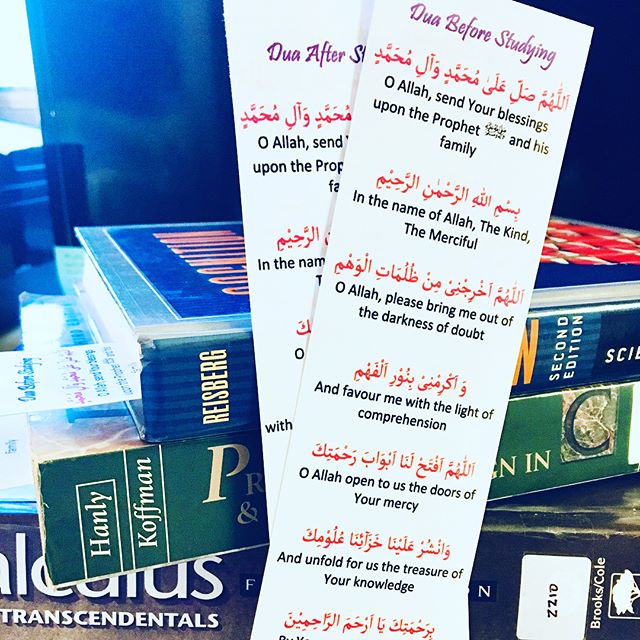 Dua Before Studying
اَللّٰهُمَّ صَلِّ عَلَىٰ مُحَمَّدٍ وَآلِ مُحَمَّدٍ
O Allah, send Your blessings
upon the Prophet ﷺ and his
family
بِسْمِ اللهِ الرَّحْمٰنِ الرَّحِيْمِ
In the name of Allah, The Kind,
The Merciful
اَللّٰهُمَّ اَخْرِجْنِىْ مِنْ ظُلُمَاتِ الْوَهْمِ
O Allah, please bring me out of
the darkness of doubt
وَ اَكْرِمْنِىْ بِنُوْرِ الْفَهْمِ
And favour me with the light of
comprehension
اَللّٰهُمَّ افْتَحْ لَنَا اَبْوَابَ رَحْمَتِكَ
O Allah open to us the doors of
Your mercy
وَانْشُرْ عَلَيْنَا خَزَآئِنَ عُلُوْمِكَ
And unfold for us the treasure of
Your knowledge
بِرَحْمَتِكَ يَا اَرْحَمَ الرَّاحِمِيْنَ
Dua After
مُحَمَّدٍ وَآلِ مُحَمَّدٍ
O Allah, send
upon the
In the
O
with
REISBERG
SECOND
EDITION
Hanly
Koffman
&
IN
Dua Before Studying
family
TRANSCENDENTALS
Brooks/Cole